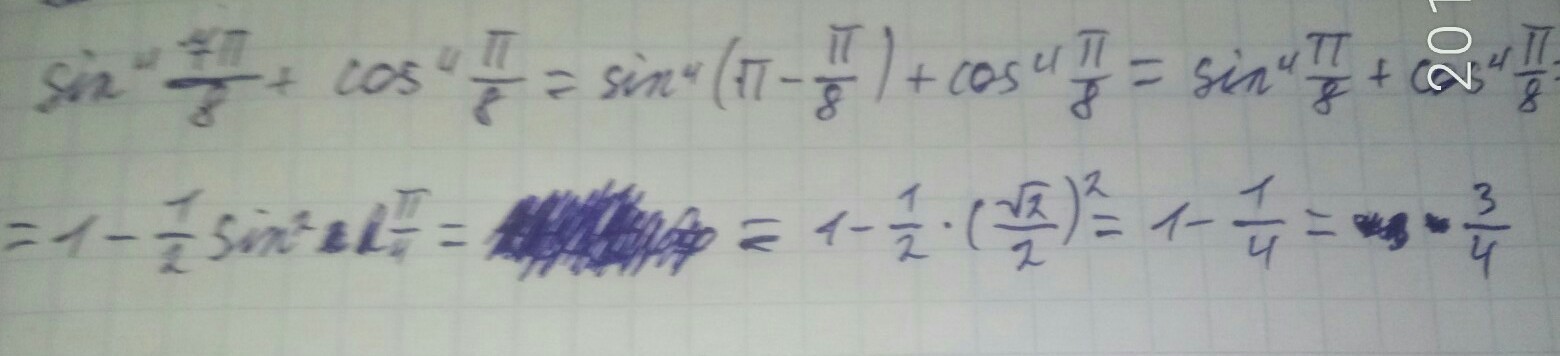 sin⁴ 7π/8 + cos⁴ π/8 = sin⁴ (π - π/8) + cos⁴ π/8 = sin⁴ π/8 + cos⁴ π/8 =
= 1 - 1/2 sin² π/4 = = 1 - 1/2 · (√2/2)² = 1 - 1/4 = 3/4
201